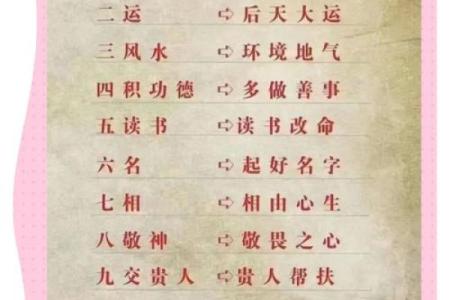 二运 ⇨后天大运
三风水 ⇨环境地气
四积功德 ⇨多做善事
五读书 ⇨读书改命
六名 ⇨起好名字
七相 ⇨相由心生
八敬神 ⇨敬畏之心
九交贵人 ⇨贵人帮扶